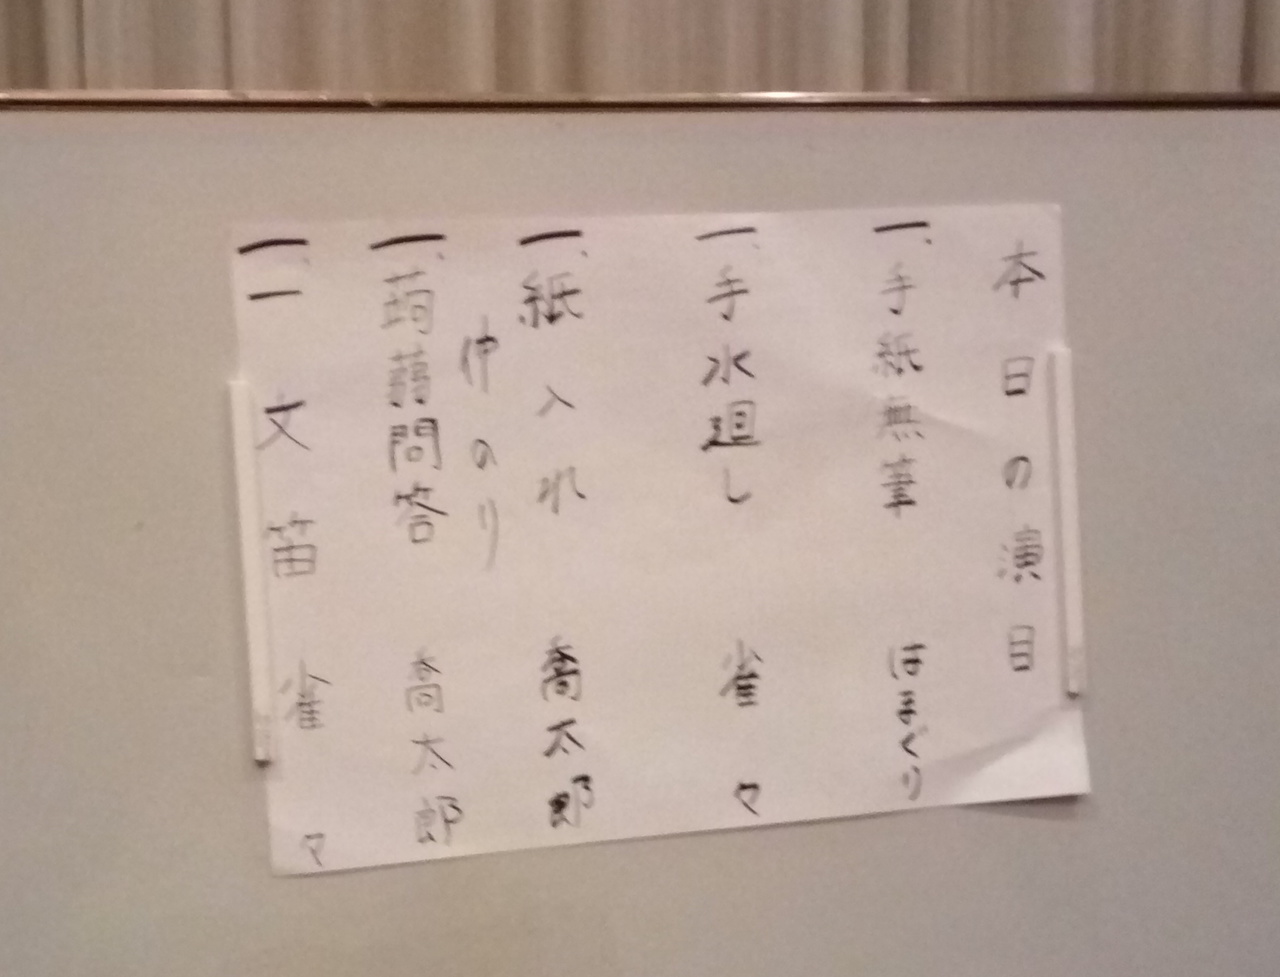 本日の演目
一、手紙無筆 はまぐり
一、手水廻し 雀々
一、紙入れ 喬太郎
仲のり
一、蒟蒻問答 喬太郎
一、一文笛 雀々